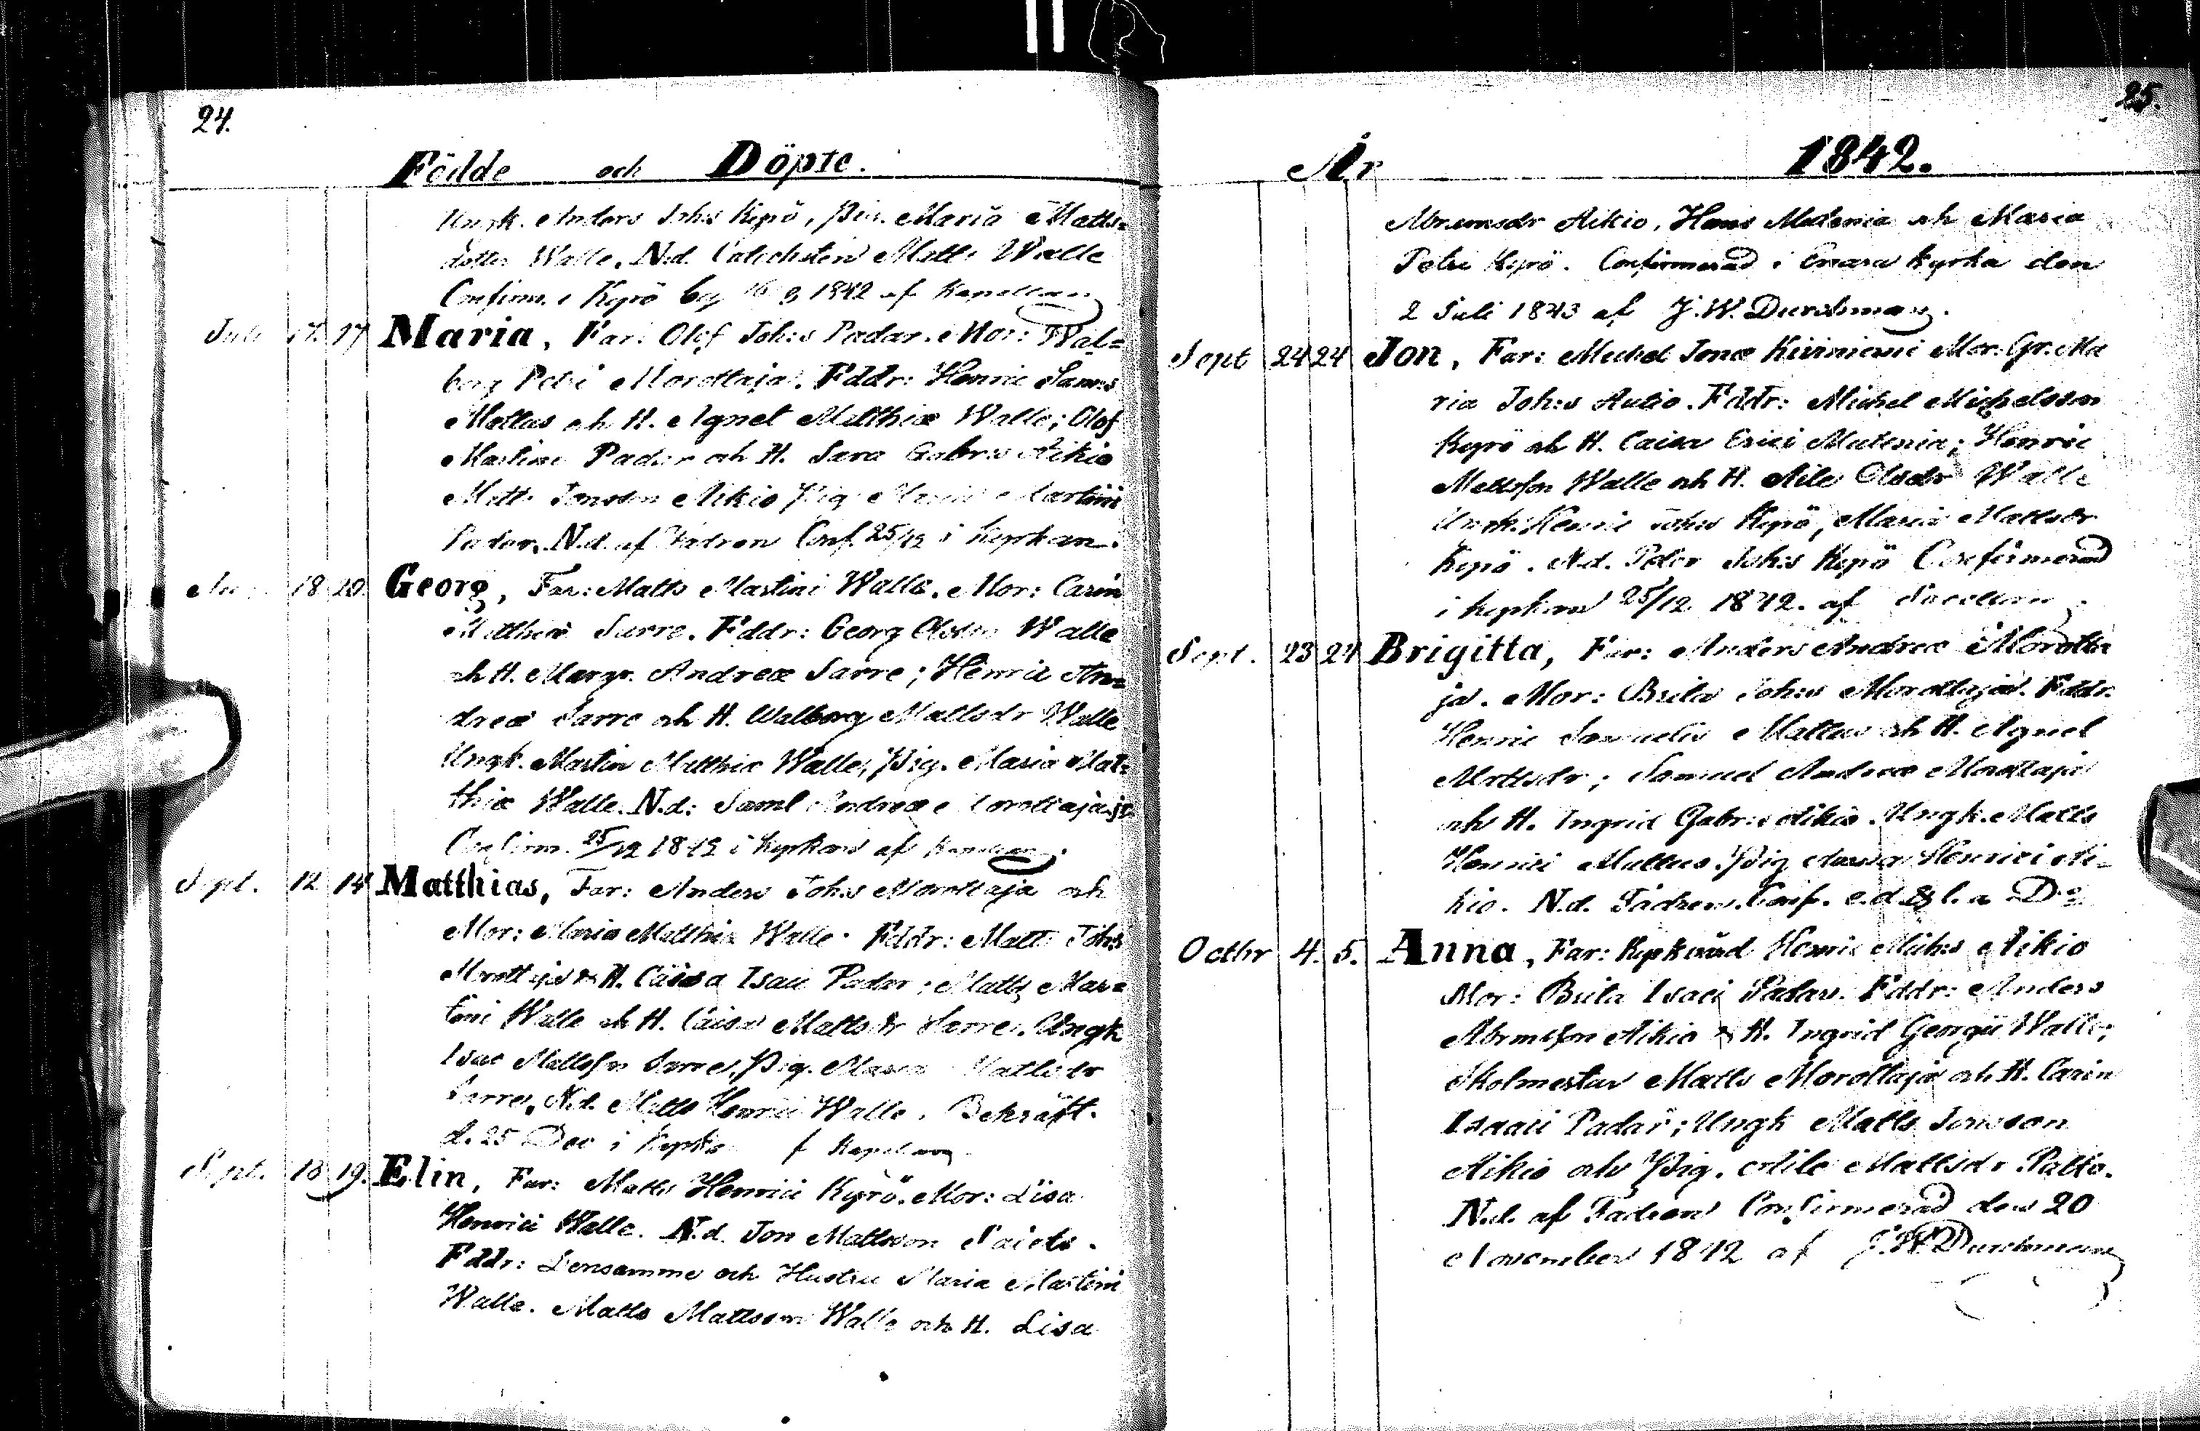 24.
Födde och Döpte.
Ungk. Anders Joh:s Kyrö, Pig. Maria Matts=
dotter Walle. N.d. Catecheten Matts Walle
Confirm. i Kyrö by 16 9 1842 af Kapellan
Juli 17. 17 Maria, Far: Olof Joh:s Padar. Mor: Wal=
borg Petri Morottaja. Fddr: Henric Sam:s
Mattus och H. Agnet Matthiæ Walle; Olof
Martini Padar och H. Sara Gabr:s Aikio
Matts Jonsson Aikio Pig. Maria Martini
Padar. N.d. af Fadren Conf. 25/12 i kyrkan.
18 20. Georg, Far: Matts Martini Walle. Mor: Carin
Matthiæ Sarre. Fddr: Georg Olofss. Walle
och H. Margr. Andreæ Sarre; Henric An=
dreæ Sarre och H. Walborg Mattsdr Walle
Ungk. Martin Matthiæ Walle, Pig. Maria Mat=
thiæ Walle. N.d: Saml Andreæ Morottaja jr.
Confirm. 25/12 1842 i kyrkan af Kapellan
Sept. 12 14 Matthias, Far: Anders Joh:s Morottaja och
Mor: Maria Matthiæ Walle. Fddr: Matts Joh:s
Morottaja & H. Caisa Isaci Padar; Matts Mar=
tini Walle och H. Caisa Mattsdr Sarre. Ungk
Isac Mattsson Sarre, Pig. Maria Mattsdr
Sarre, N.d. Matts Henrici Walle. Bekräft.
d. 25 Dec i kyrk. af Kapellan
Sept. 18 19. Elin, Far: Matts Henrici Kyrö. Mor: Lisa
Henrici Walle. N.d. Jon Mattsson
Fddr: Densamme och Hustru Maria Martini
Walle. Matts Mattsson Walle och H. Lisa
25.
År 1842.
Abramsdr Aikio, Hans Matenia och Maria
Petri Kyrö. Confirmerad i Enara kyrka den
2 Juli 1843 af J. W. Durchman.
Sept 24 24 Jon, Far: Michel Jonæ Kiviniemi Mor: Gr. Ma
ria Joh:s Autio. Fddr: Michel Michelsson
Kyrö och H. Caisa Erici Matenia; Henric
Mattsson Walle och H. Aile Olsdr Walle
Ungk. Henric Joh:s Kyrö, Maria Mattsdr
Kyrö. N.d. Peter Joh:s Kyrö Confirmerad
i kyrkan 25/12 1842. af
Sept. 23 24 Brigitta, Far: Anders Andreæ Morotta
ja. Mor: Brita Joh:s Morottaja. Fddr.
Henric Samuelis Mattus och H. Agnet
Mattsdr; Samuel Andreæ Morottaja
och H. Ingrid Gabr:s Aikio. Ungk. Matts
Henrici Mattus. Pig Anna Henrici Ai=
kio. N.d. Fadren. Conf. e.d. & l. a D:o
Octbr 4. 5. Anna, Far: Kyrkvärd Henric Mich:s Aikio
Mor: Brita Isaci Padar. Fddr: Anders
Abrmsson Aikio & H. Ingrid Georgii Walle;
Skolmestar Matts Morottaja och H. Carin
Isaaci Padar; Ungk Matts Jonsson
Aikio och Pig. Aile Mattsdr Palto.
N.d. af Fadren Confirmerad den 20
November 1842 af J. W. Durchman